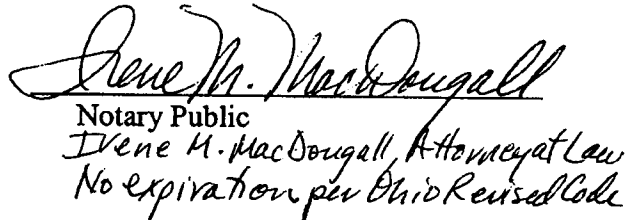 Irene M. MacDougall
Notary Public
Irene M. MacDougall, Attorney at Law
No expiration per Ohio Revised Code